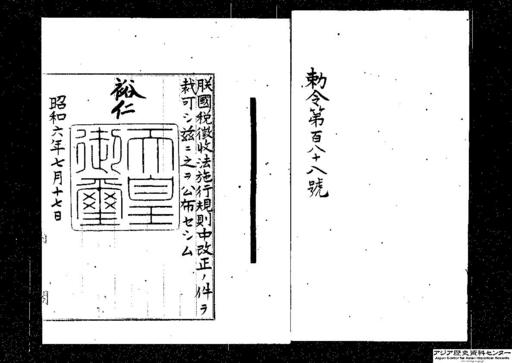 勅令第百八十八號
朕國税徴收法施行規則中改正ノ件ヲ
裁可シ茲ニ之ヲ公布セシム
裕仁
天皇
御璽
昭和六年七月十七日
アジア歴史資料センター
Japan Center for Asian Historical Records